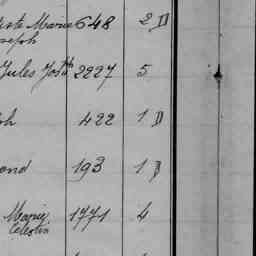 Marie 648 2 D
seph
Jules Josth 2227 5
ph 422 1 D
ond 193 1 D
Marie 1771 4
Celestin